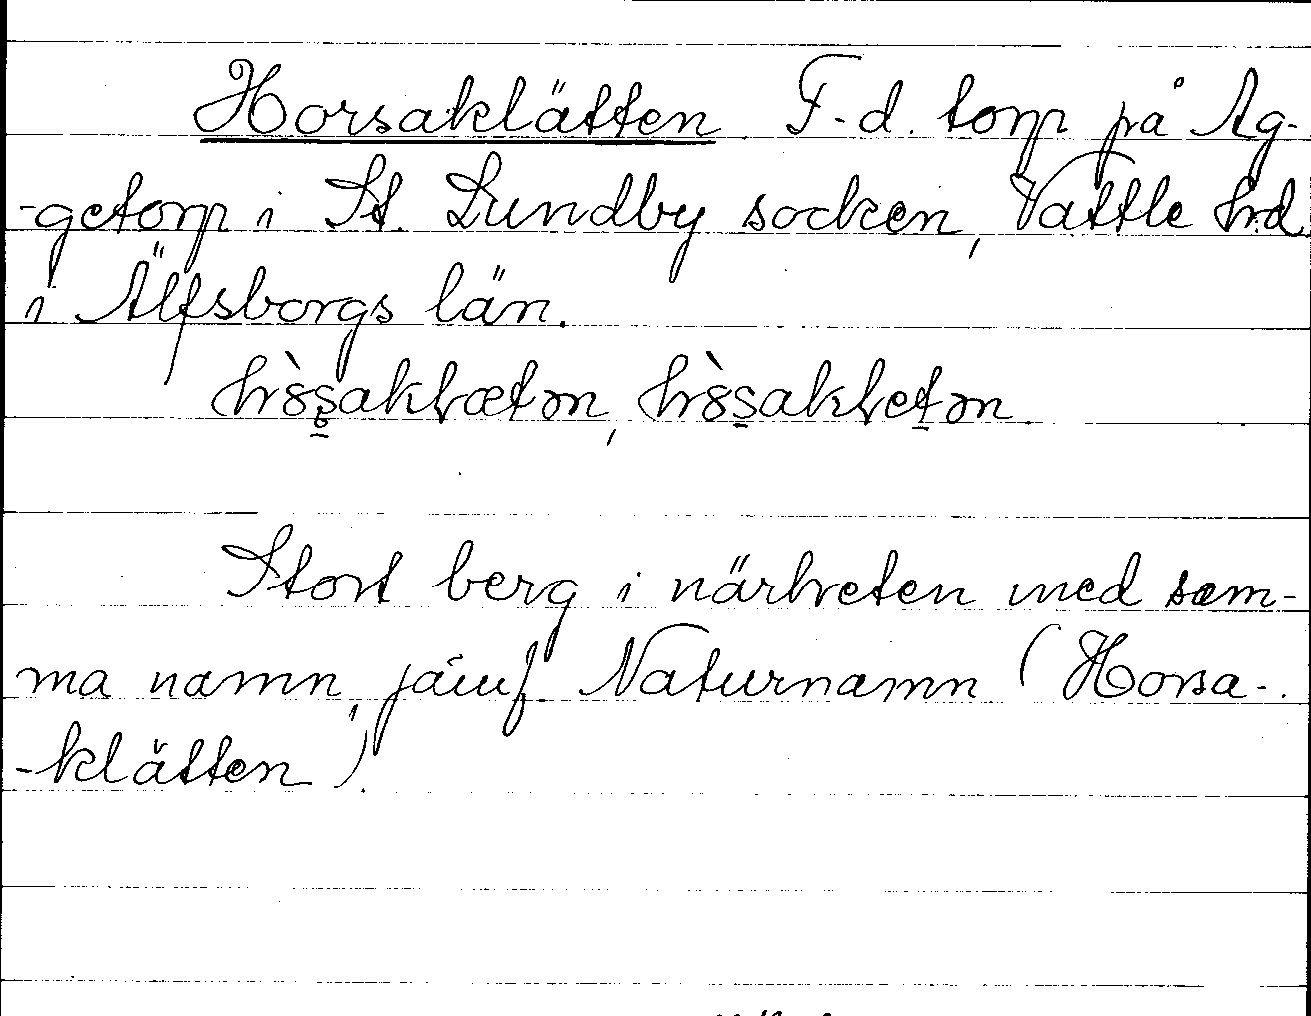 Horsaklätten F.d. torp på Ag-
-getorp i St. Lundby socken, Vättle hrd
i Älfsborgs län.
Stort berg i närheten med sam-
ma namn, jämf. Naturnamn (Horsa-
-klätten)